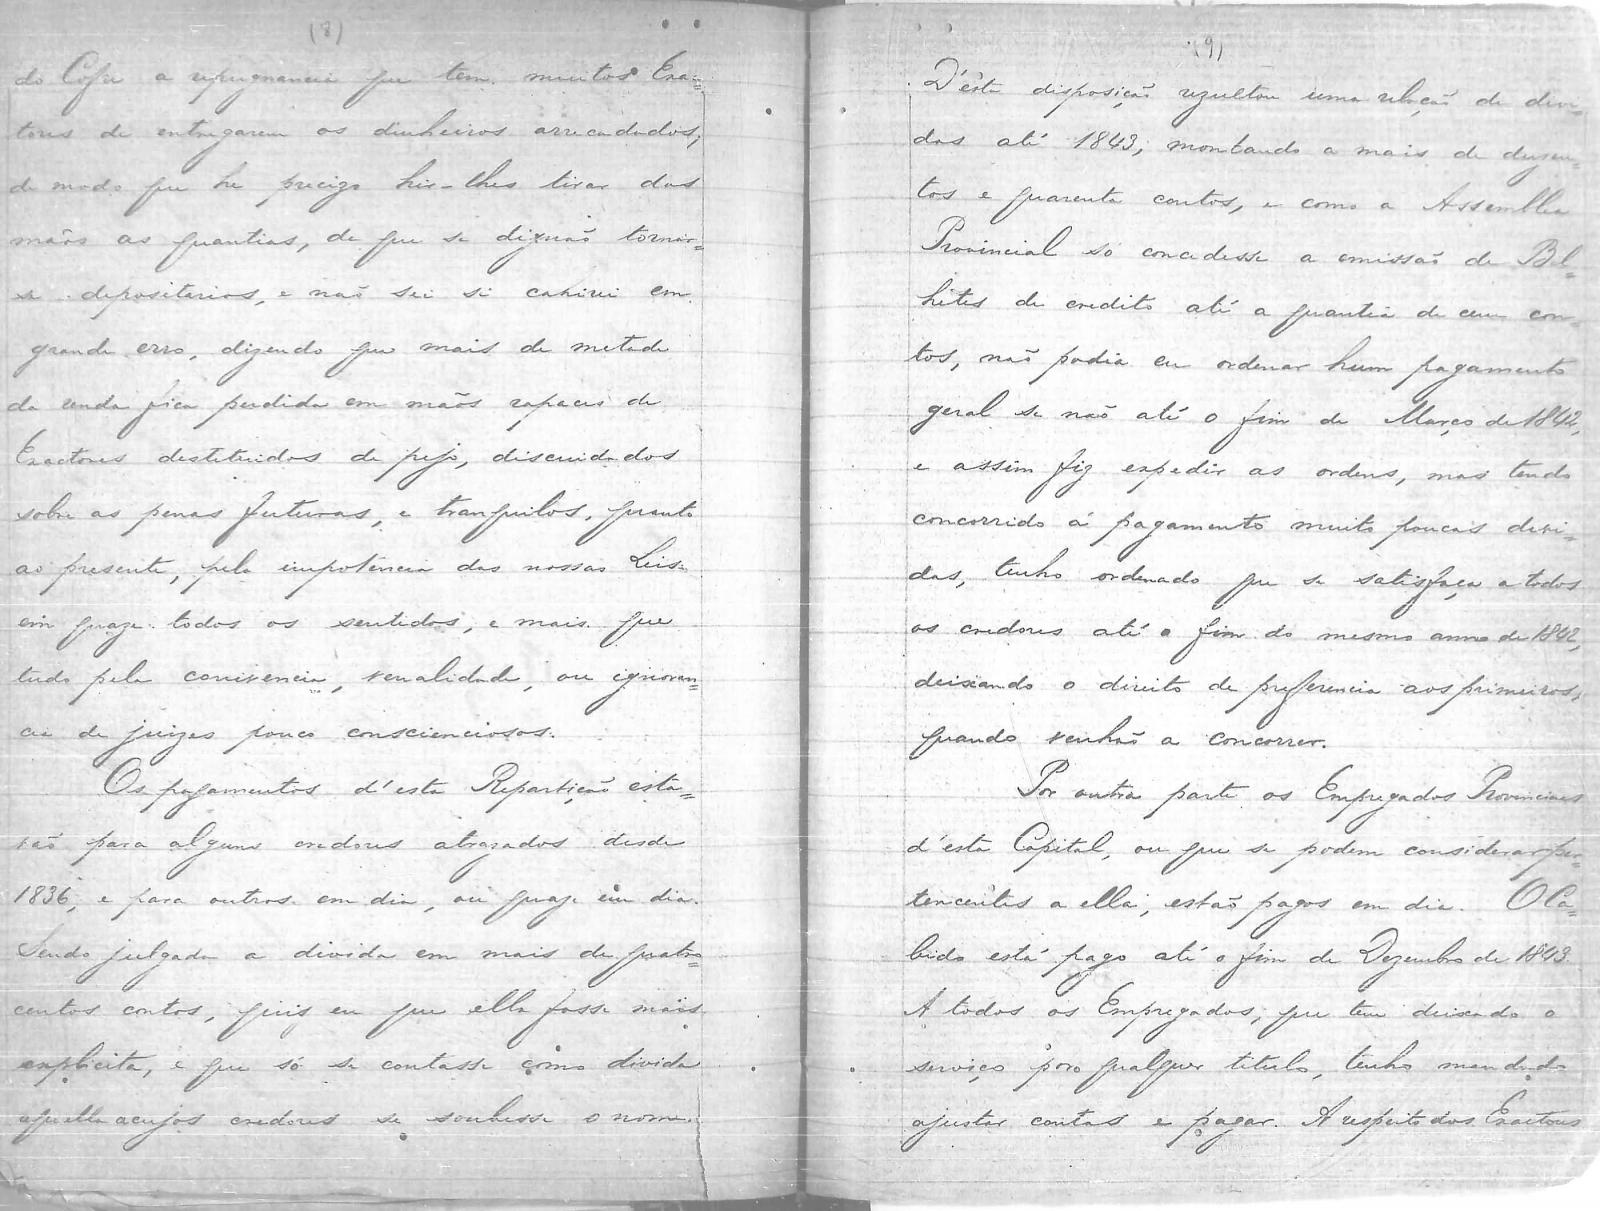 (8)
do Cofre a repugnancia que tem muitos Exa=
tores de entregarem os dinheiros arrecadados,
de modo que he precizo hir-lhes tirar das
mãos as quantias, de que se dignão tornar=
se depositarios, e não sei si cahirei em
grande erro, dizendo que mais de metade
da renda fica perdida em mãos rapaces de
Exactores destituidos de pejo, discuidados
sobre as penas futuras, e tranquilos, quanto
ao presente, pela impotencia das nossas Leis
em quaze todos os sentidos, e mais que
tudo pela conivencia, venalidade, ou ignoran=
cia de juizes pouco conscienciosos.
Os pagamentos d'esta Repartição esta=
vão para alguns credores atrazados desde
1836, e para outros em dia, ou quaze em dia.
Sendo julgada a divida em mais de quatro=
centos contos, quis eu que ella fosse mais
explicita, e que só se contasse como divida
aquella acujos credores se soubesse o nome.
(9)
D'esta disposição rezultou uma relação de divi=
das até 1843, montando a mais de duzen=
tos e quarenta contos, e como a Assemblea
Provincial só concedesse a emissão de Bi=
lhetes de credito até a quantia de cem con=
tos, não podia eu ordenar hum pagamento
geral se não até o fim de Março de 1842,
e assim fiz expedir as ordens, mas tendo
concorrido á pagamento muito poucas divi=
das, tenho ordenado que se satisfaça a todos
os credores até o fim do mesmo anno de 1842,
deixando o direito de preferencia aos primeiros,
quando venhão a concorrer.
Por outra parte os Empregados Provinciaes
d'esta Capital, ou que se podem considerar per=
tencentes a ella, estão pagos em dia. O Ca=
bido está pago até o fim de Dezembro de 1843.
A todos os Empregados, que tem deixado o
serviço por qualquer titulo, tenho mandado
ajustar contas e pagar. A respeito dos Exactores